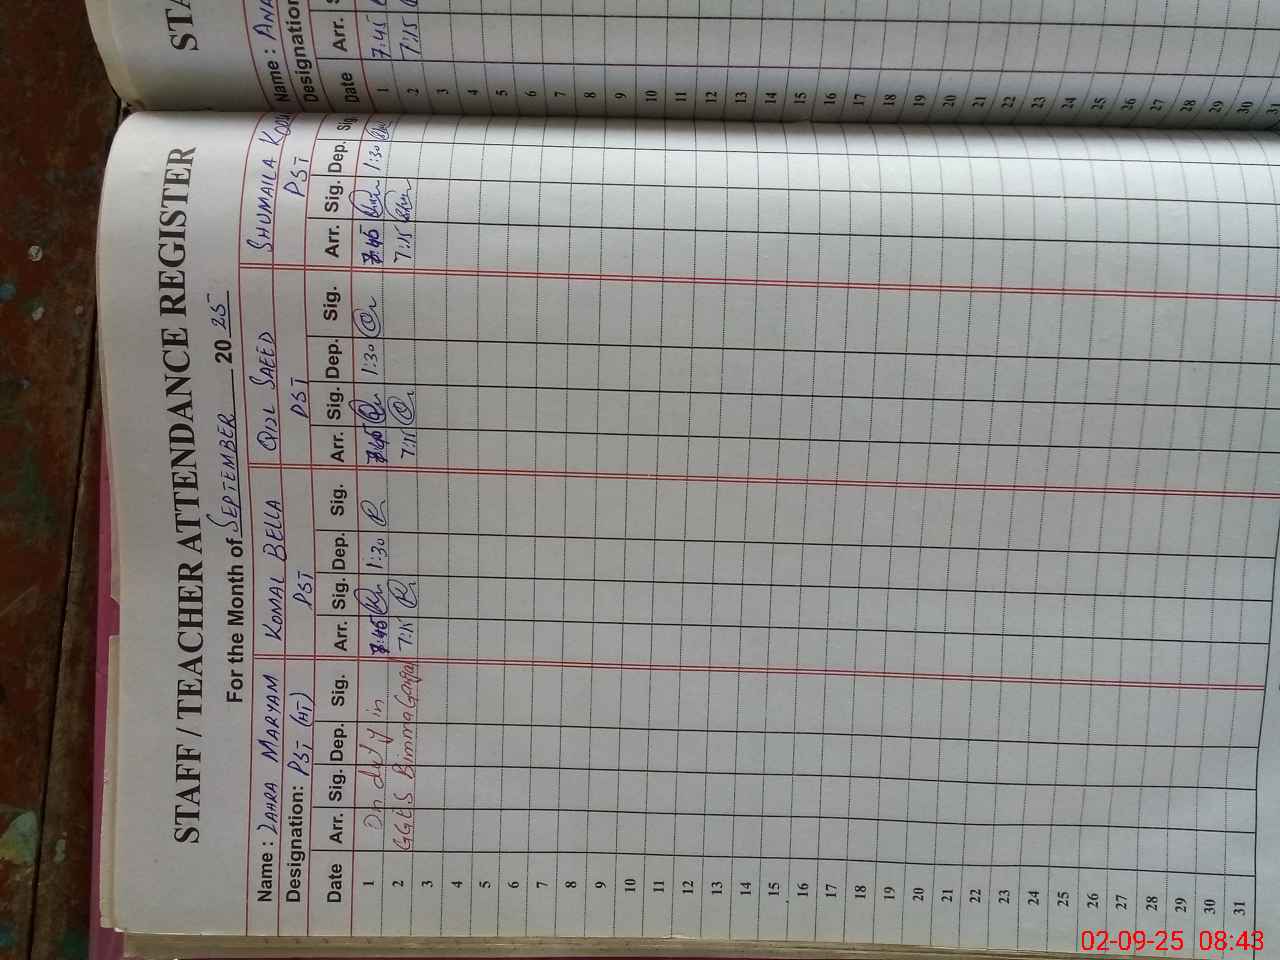 STAFF / TEACHER ATTENDANCE REGISTER
For the Month of SEPTEMBER 20 25
Name : ZAHRA MARYAM KOMAL BELLA QIZL SAEED SHUMAILA
Designation: PST (HT) PST PST PST
Date Arr. Sig. Dep. Sig. Arr. Sig. Dep. Sig. Arr. Sig. Dep. Sig. Arr. Sig. Dep. Sig.
1 On duty in 7:45 1:30 7:45 1:30 7:45 1:30
2 GGES 7:15 7:15 7:15
3
4
5
6
7
8
9
10
11
12
13
14
15
16
17
18
19
20
21
22
23
24
25
26
27
28
29
30
31
STA
Name : ANA
Designation
Date Arr. S
1 7:45
2 7:15
3
4
5
6
7
8
9
10
11
12
13
14
15
16
17
18
19
20
21
22
23
24
25
26
27
28
29
30
31
02-09-25 08:43